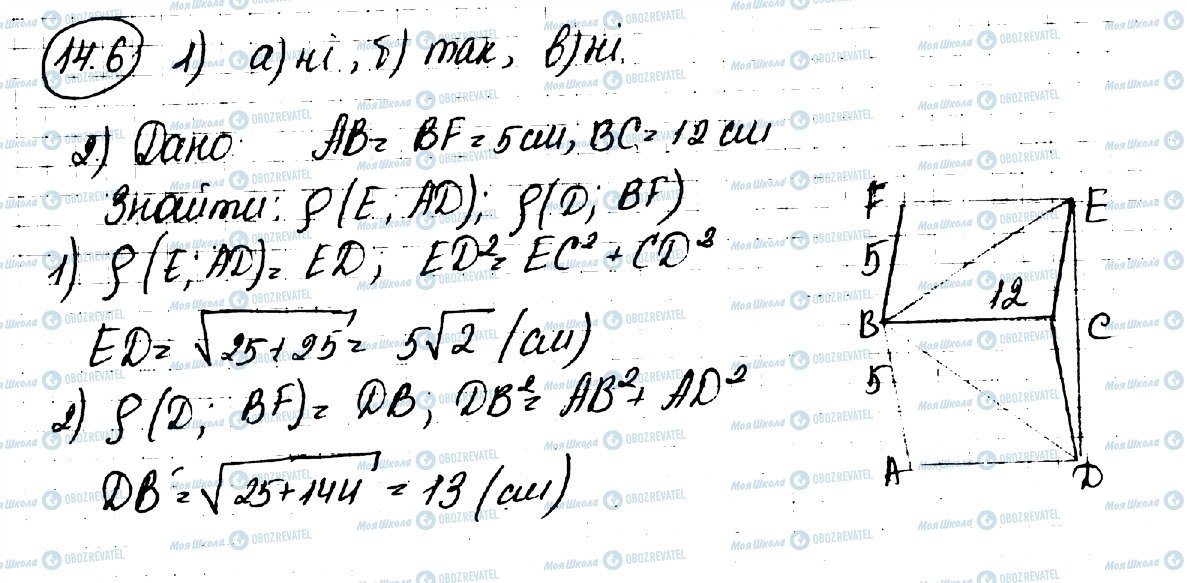 14.6) 1) а) ні, б) так, в) ні.
2) Дано: AB = BF = 5 см, BC = 12 см
Знайти: ρ(E; AD); ρ(D; BF)
1) ρ(E; AD) = ED; ED² = EC² + CD²
ED = √25+25 = 5√2 (см)
2) ρ(D; BF) = DB; DB² = AB² + AD²
DB = √25+144 = 13 (см)
F E
5
12
B C
5
A D
МояШкола OBOZREVATEL